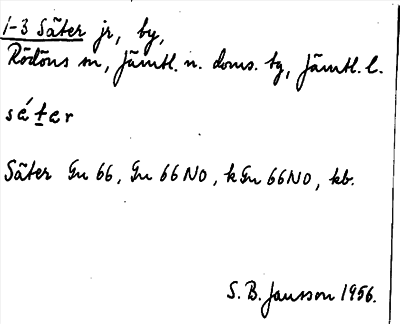 1-3 Säter jr, by,
Rödöns sn, Jämtl. n. doms. tg, Jämtl. l.
sé́ter
Säter Gu 66, Gu 66 NO, k Gu 66 NO, kb.
S. B. Jansson 1956.